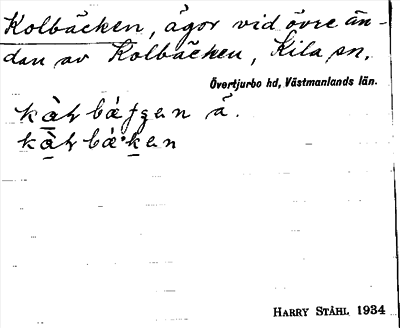 Kolbäcken, ägor vid övre än-
dan av Kolbäcken, Kila sn.
Övertjurbo hd, Västmanlands län.
å.
HARRY STÅHL 1934